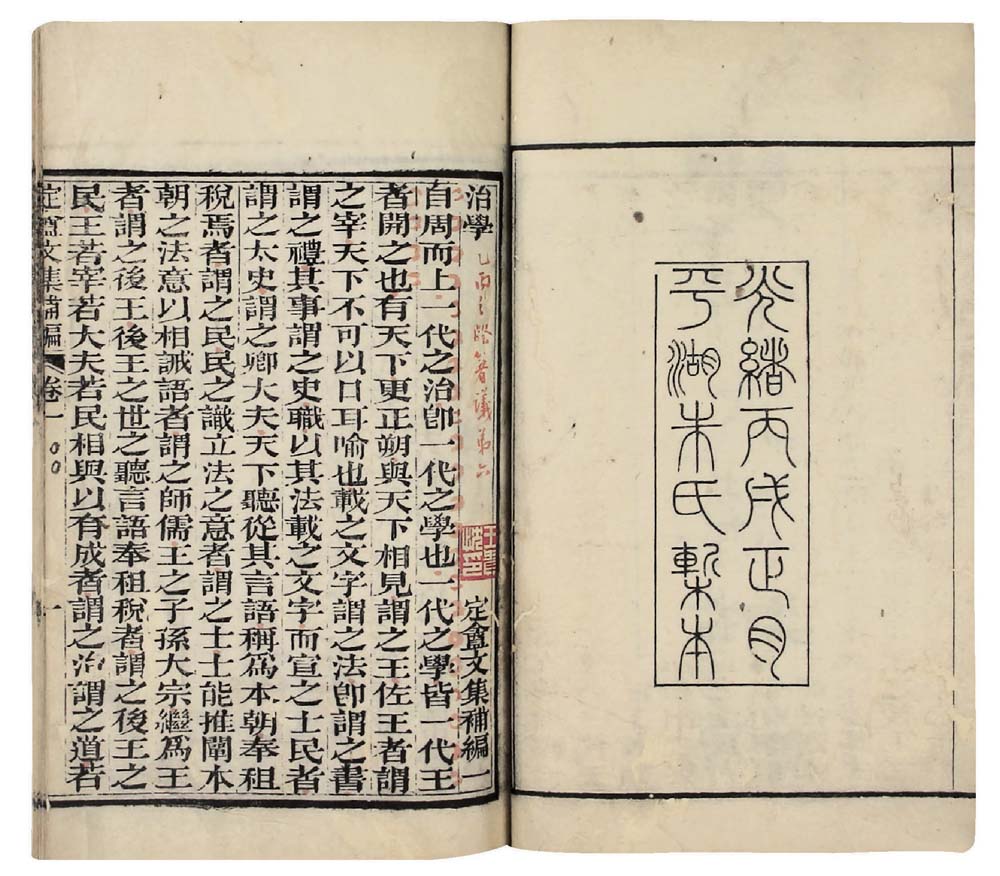 光緒丙戌正月
平湖朱氏槧本
治學 乙丙之際箸議第六 定盦文集補編一
自周而上一代之治卽一代之學也一代之學皆一代王
者開之也有天下更正朔與天下相見謂之王佐王者謂
之宰天下不可以口耳喻也載之文字謂之法卽謂之書
謂之禮其事謂之史職以其法載之文字而宣之士民者
謂之太史謂之卿大夫天下聽從其言語稱爲本朝奉租
稅焉者謂之民民之識立法之意者謂之士士能推闡本
朝之法意以相誡語者謂之師儒王之子孫大宗繼爲王
者謂之後王後王之世之聽言語奉租稅者謂之後王之
民王若宰若大夫若民相與以育成者謂之治謂之道若
定盦文集補編 卷一 一